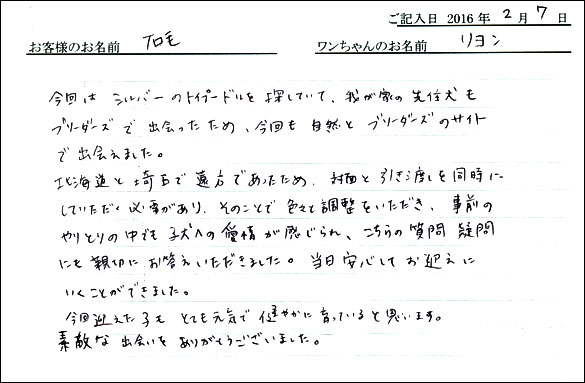 ご記入日 2016 年 2 月 7 日
お客様のお名前 ワンちゃんのお名前 リヨン
今回は シルバーのトイプードルを 探していて、我が家の先住犬も
ブリーダーズで 出会ったため、今回も 自然と ブリーダーズのサイト
で出会えました。
北海道と埼玉で 遠方であったため、対面と引き渡しを同時に
していただく必要があり、そのことで 色々と調整をいただき、事前の
やりとりの中でも 子犬への愛情が感じられ、こちらの質問 疑問
にも 親切に お答えいただきました。当日安心して お迎えに
いくことができました。
今回迎えた子も とても元気で 健やかに 育っていると思います。
素敵な 出会いを ありがとうございました。